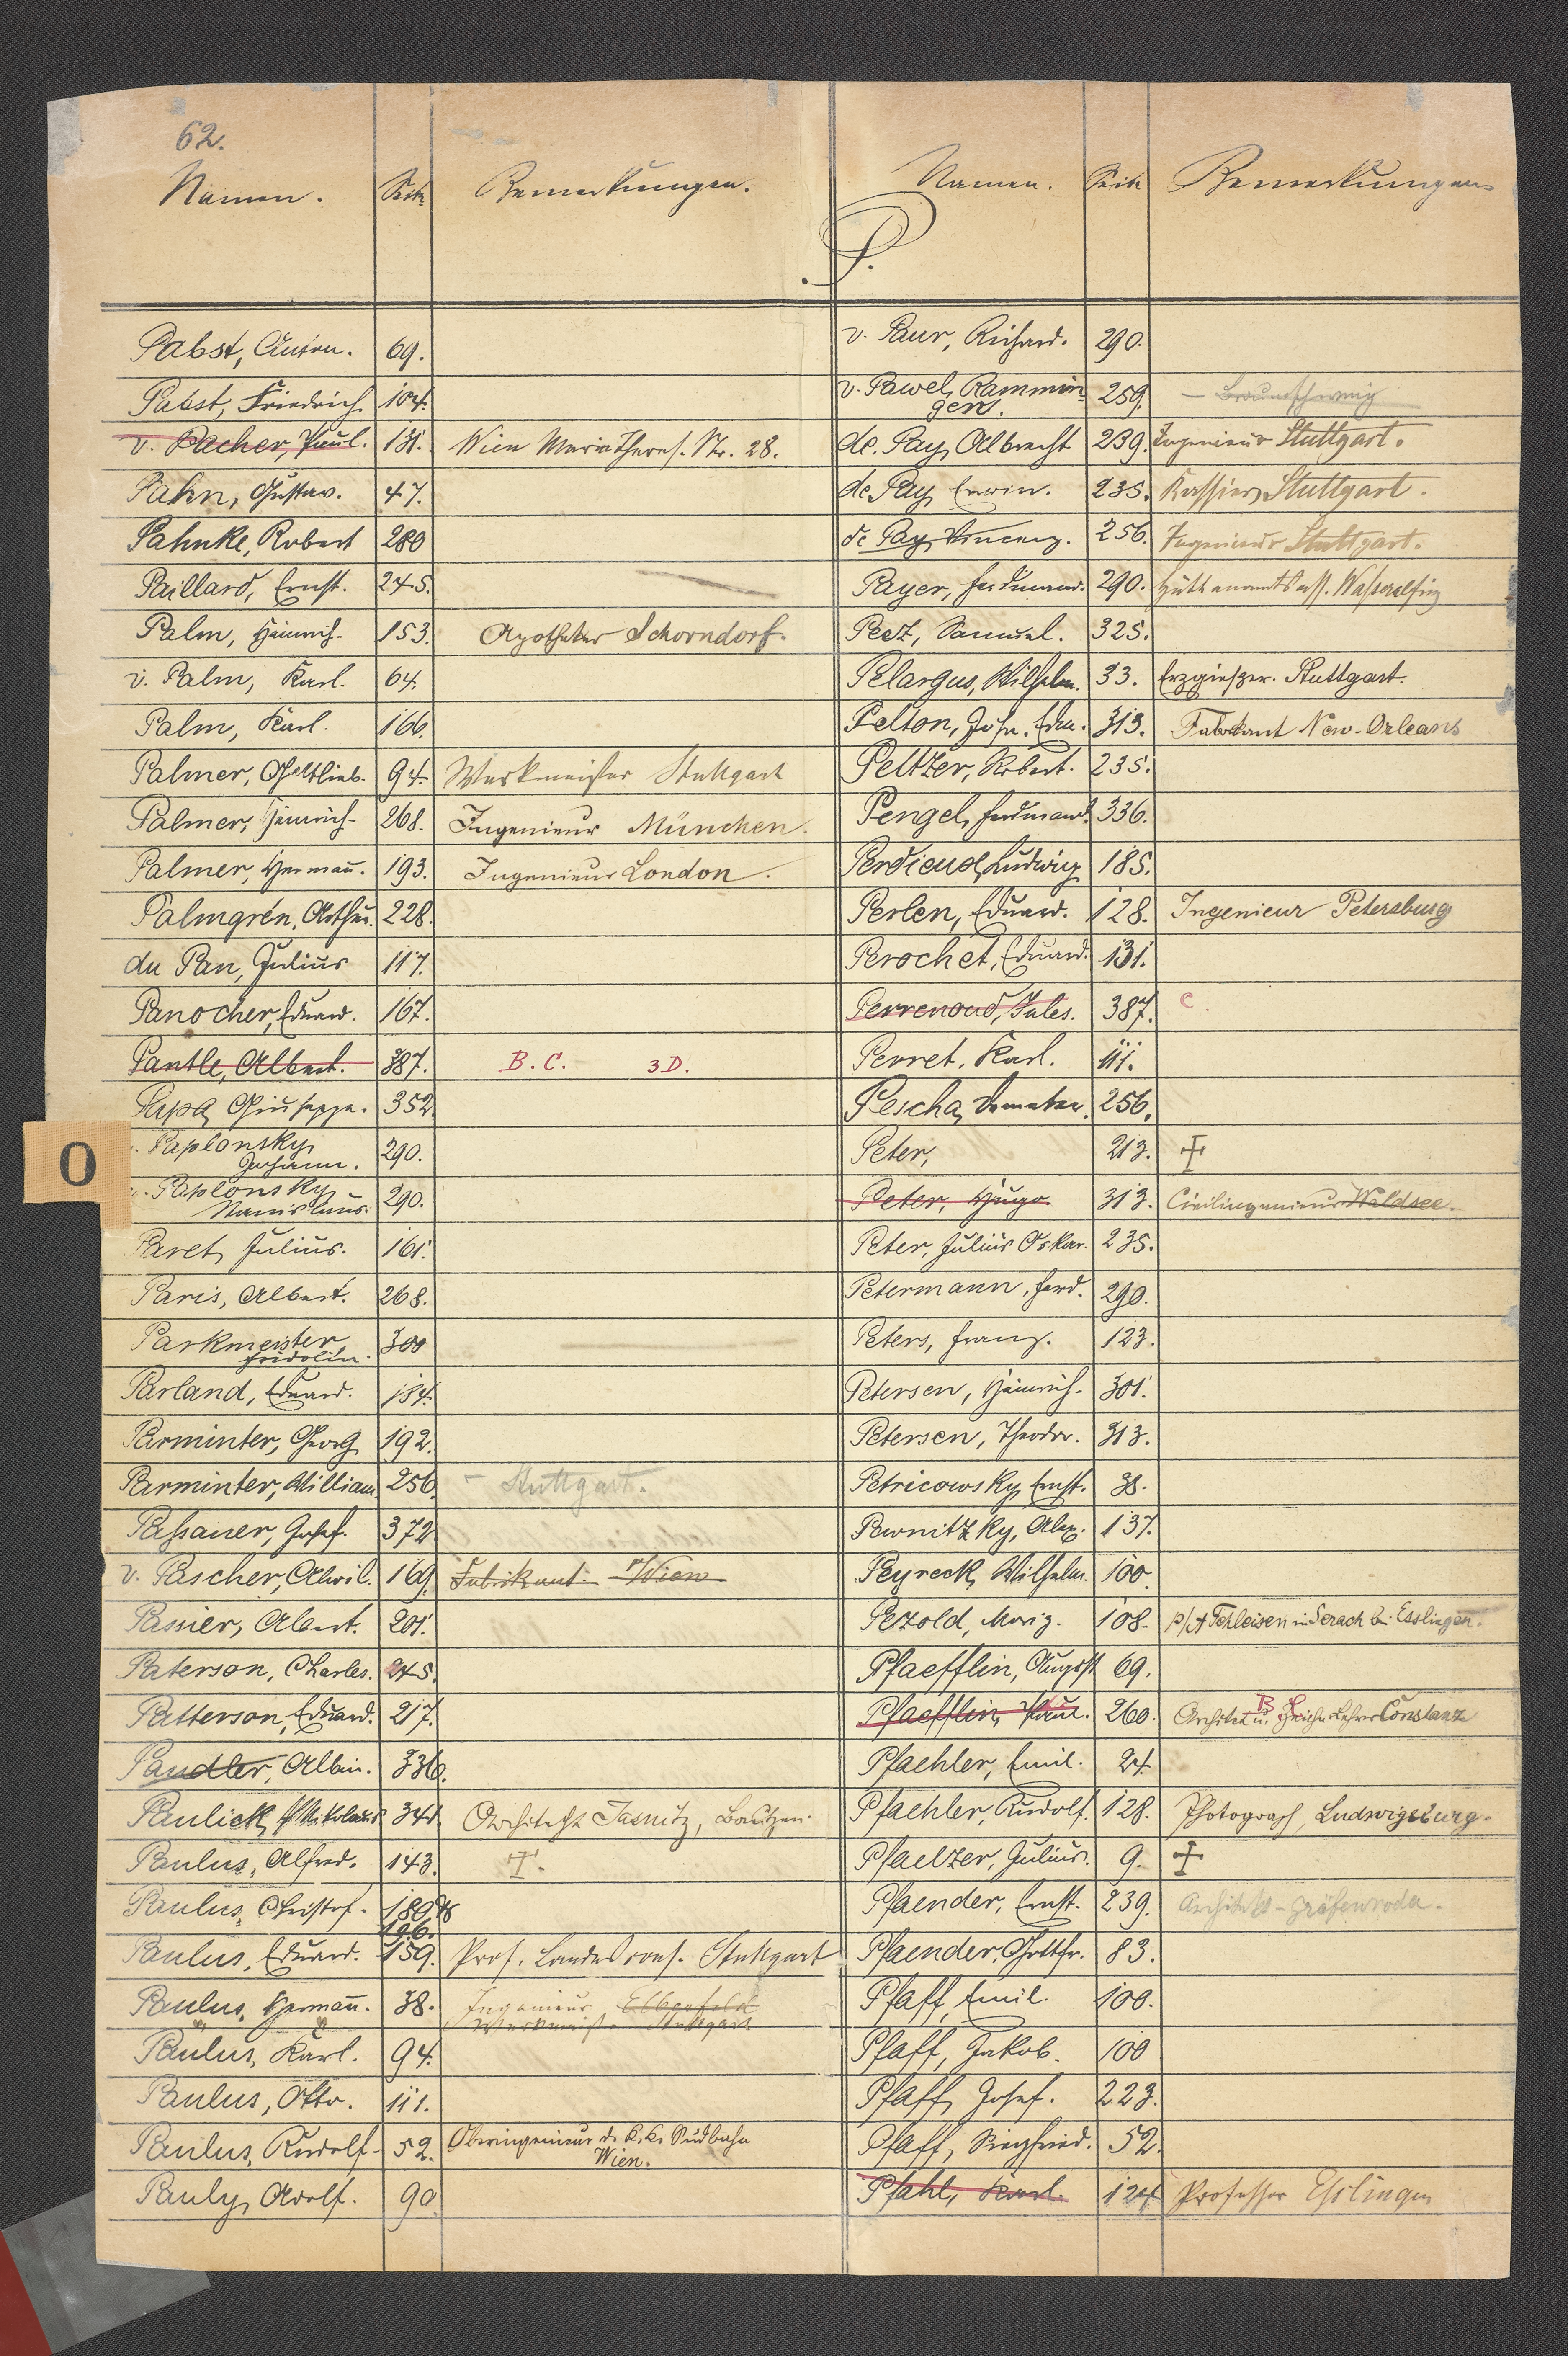 62.
Namen. Seite Bemerkungen.
Pabst, Anton. 69.
Pabst, Friedrich 104.
v. Pacher, Paul. 131. Wien Maria Theres. Str. 28.
Pahn, Gustav. 47.
Pahnke, Robert 280
Paillard, Ernst. 245.
Palm, Heinrich. 153. Apotheker Schorndorf.
v. Palm, Karl. 64.
Palm, Karl. 166.
Palmer, Gottlieb. 94. Werkmeister Stuttgart
Palmer, Heinrich. 268. Ingenieur München.
Palmer, Hermañ. 193. Ingenieur London.
Palmgrén, Arthur. 228.
du Pan, Julius 117.
Panocher, Eduard. 167.
Pantle, Albert. 387. B. C. 3 D.
Papa, Giuseppe. 352.
v. Paplonsky,
Johann. 290.
v. Paplonsky,
Stanislaus. 290.
O
Paret, Julius. 161.
Paris, Albert. 268.
Parkmeister
Fridolin. 300
Parland, Eduard. 134.
Parminter, Georg 192.
Parminter, William. 256. – Stuttgart.
Paßauer, Josef. 372
v. Pascher, 169. Fabrikant Wien
Passier, Albert. 201.
Paterson, Charles. 245.
Patterson, Eduard. 217.
Paudler, Albin. 336.
Paulick, Nikolaus 341. Architekt Jasnitz, Bautzen.
Paulus, Alfred. 143. †.
Paulus, Christof. 189
196.
Paulus, Eduard. 159. Prof. Landescons. Stuttgart
Paulus, Hermañ. 38. Ingenieur Elberfeld
Werkmeist. Stuttgart
Paulus, Karl. 94.
Paulus, Otto. 111.
Paulus, Rudolf. 52. Oberingenieur d. k. k. Südbahn
Wien.
Pauly, Adolf. 90
Namen. Seite Bemerkungen
P.
v. Paur, Richard. 290.
v. Pawel, Rammin
gers. 259. – Braunschweig
de Pay, Albrecht 239. Ingenieur Stuttgart.
de Pay, Erwin. 235. Kassier, Stuttgart.
de Pay, Vincenz. 256. Ingenieur Stuttgart.
Payer, Ferdinand. 290. Hüttenamtsass. Wasseralfing
Peez, Samuel. 325.
Pelargus, Wilhelm. 33. Erzgießer. Stuttgart.
Pelton, John. Edm. 313. Fabrikant New-Orleans
Peltzer, Robert. 235.
Pengel, Ferdinand. 336.
Perdieus, Ludwig 185.
Perlen, Eduard. 128. Ingenieur Petersburg
Perochet, Eduard. 131.
Perrenoud, Jules. 387. C
Perret, Karl. 111.
Pescha, Demeter. 256.
Peter, 213. †
Peter, Hugo 313. Civilingenieur Waldsee.
Peter, Julius Oskar. 235.
Petermann, Ferd. 290.
Peters, Franz. 123.
Petersen, Heinrich. 301.
Petersen, Theodor. 313.
Petricowsky, Ernst. 38.
Pewnitzky, Alex. 137.
Peyreck, Wilhelm. 100.
Pezold, Moriz. 108. p/A Fehleisen in Serach bei Esslingen.
Pfaefflin, August 69.
Pfaefflin, Paul. 260. B Architekt u. Zeichenlehrer Constanz
Pfaehler, Emil. 24
Pfaehler, Rudolf. 128. Photograph, Ludwigsburg.
Pfaelzer, Julius. 9. †
Pfaender, Ernst. 239. Architekt – Gräfenroda.
Pfaender, Gottfr. 83.
Pfaff, Emil. 100.
Pfaff, Jakob. 100
Pfaff, Josef. 223.
Pfaff, Siegfried. 52.
Pfahl, Karl. 124 Professor Esslingen